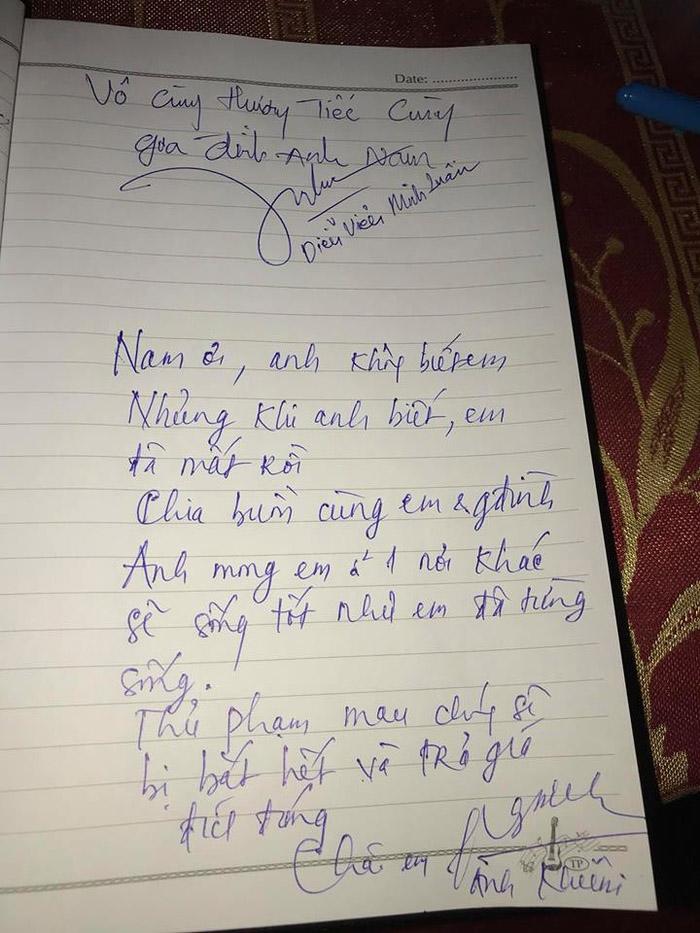 Date: ........................
Vô Cùng thương Tiếc Cùng
gia đình Anh Nam
Diễn Viên Minh Luân
Nam ơi, anh không biết em
Nhưng khi anh biết, em
đã mất rồi
Chia buồn cùng em & gđình
Anh mong em ở 1 nơi khác
sẽ sống tốt như em đã từng
sống.
Thủ phạm mau chóng sẽ
bị bắt hết và trả giá
thích đáng
Chào em
TP